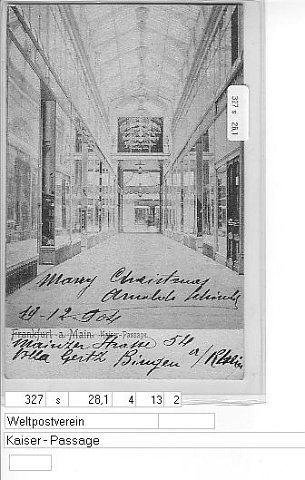 327 s 28,1
Marry Christmas
Arnolds
19-12-904
Frankfurt a. Main. Kaiser-Passage.
Mainzer Strasse 54
Villa Gertk Bingen a/Rhein
327 s 28,1 4 13 2
Weltpostverein
Kaiser - Passage